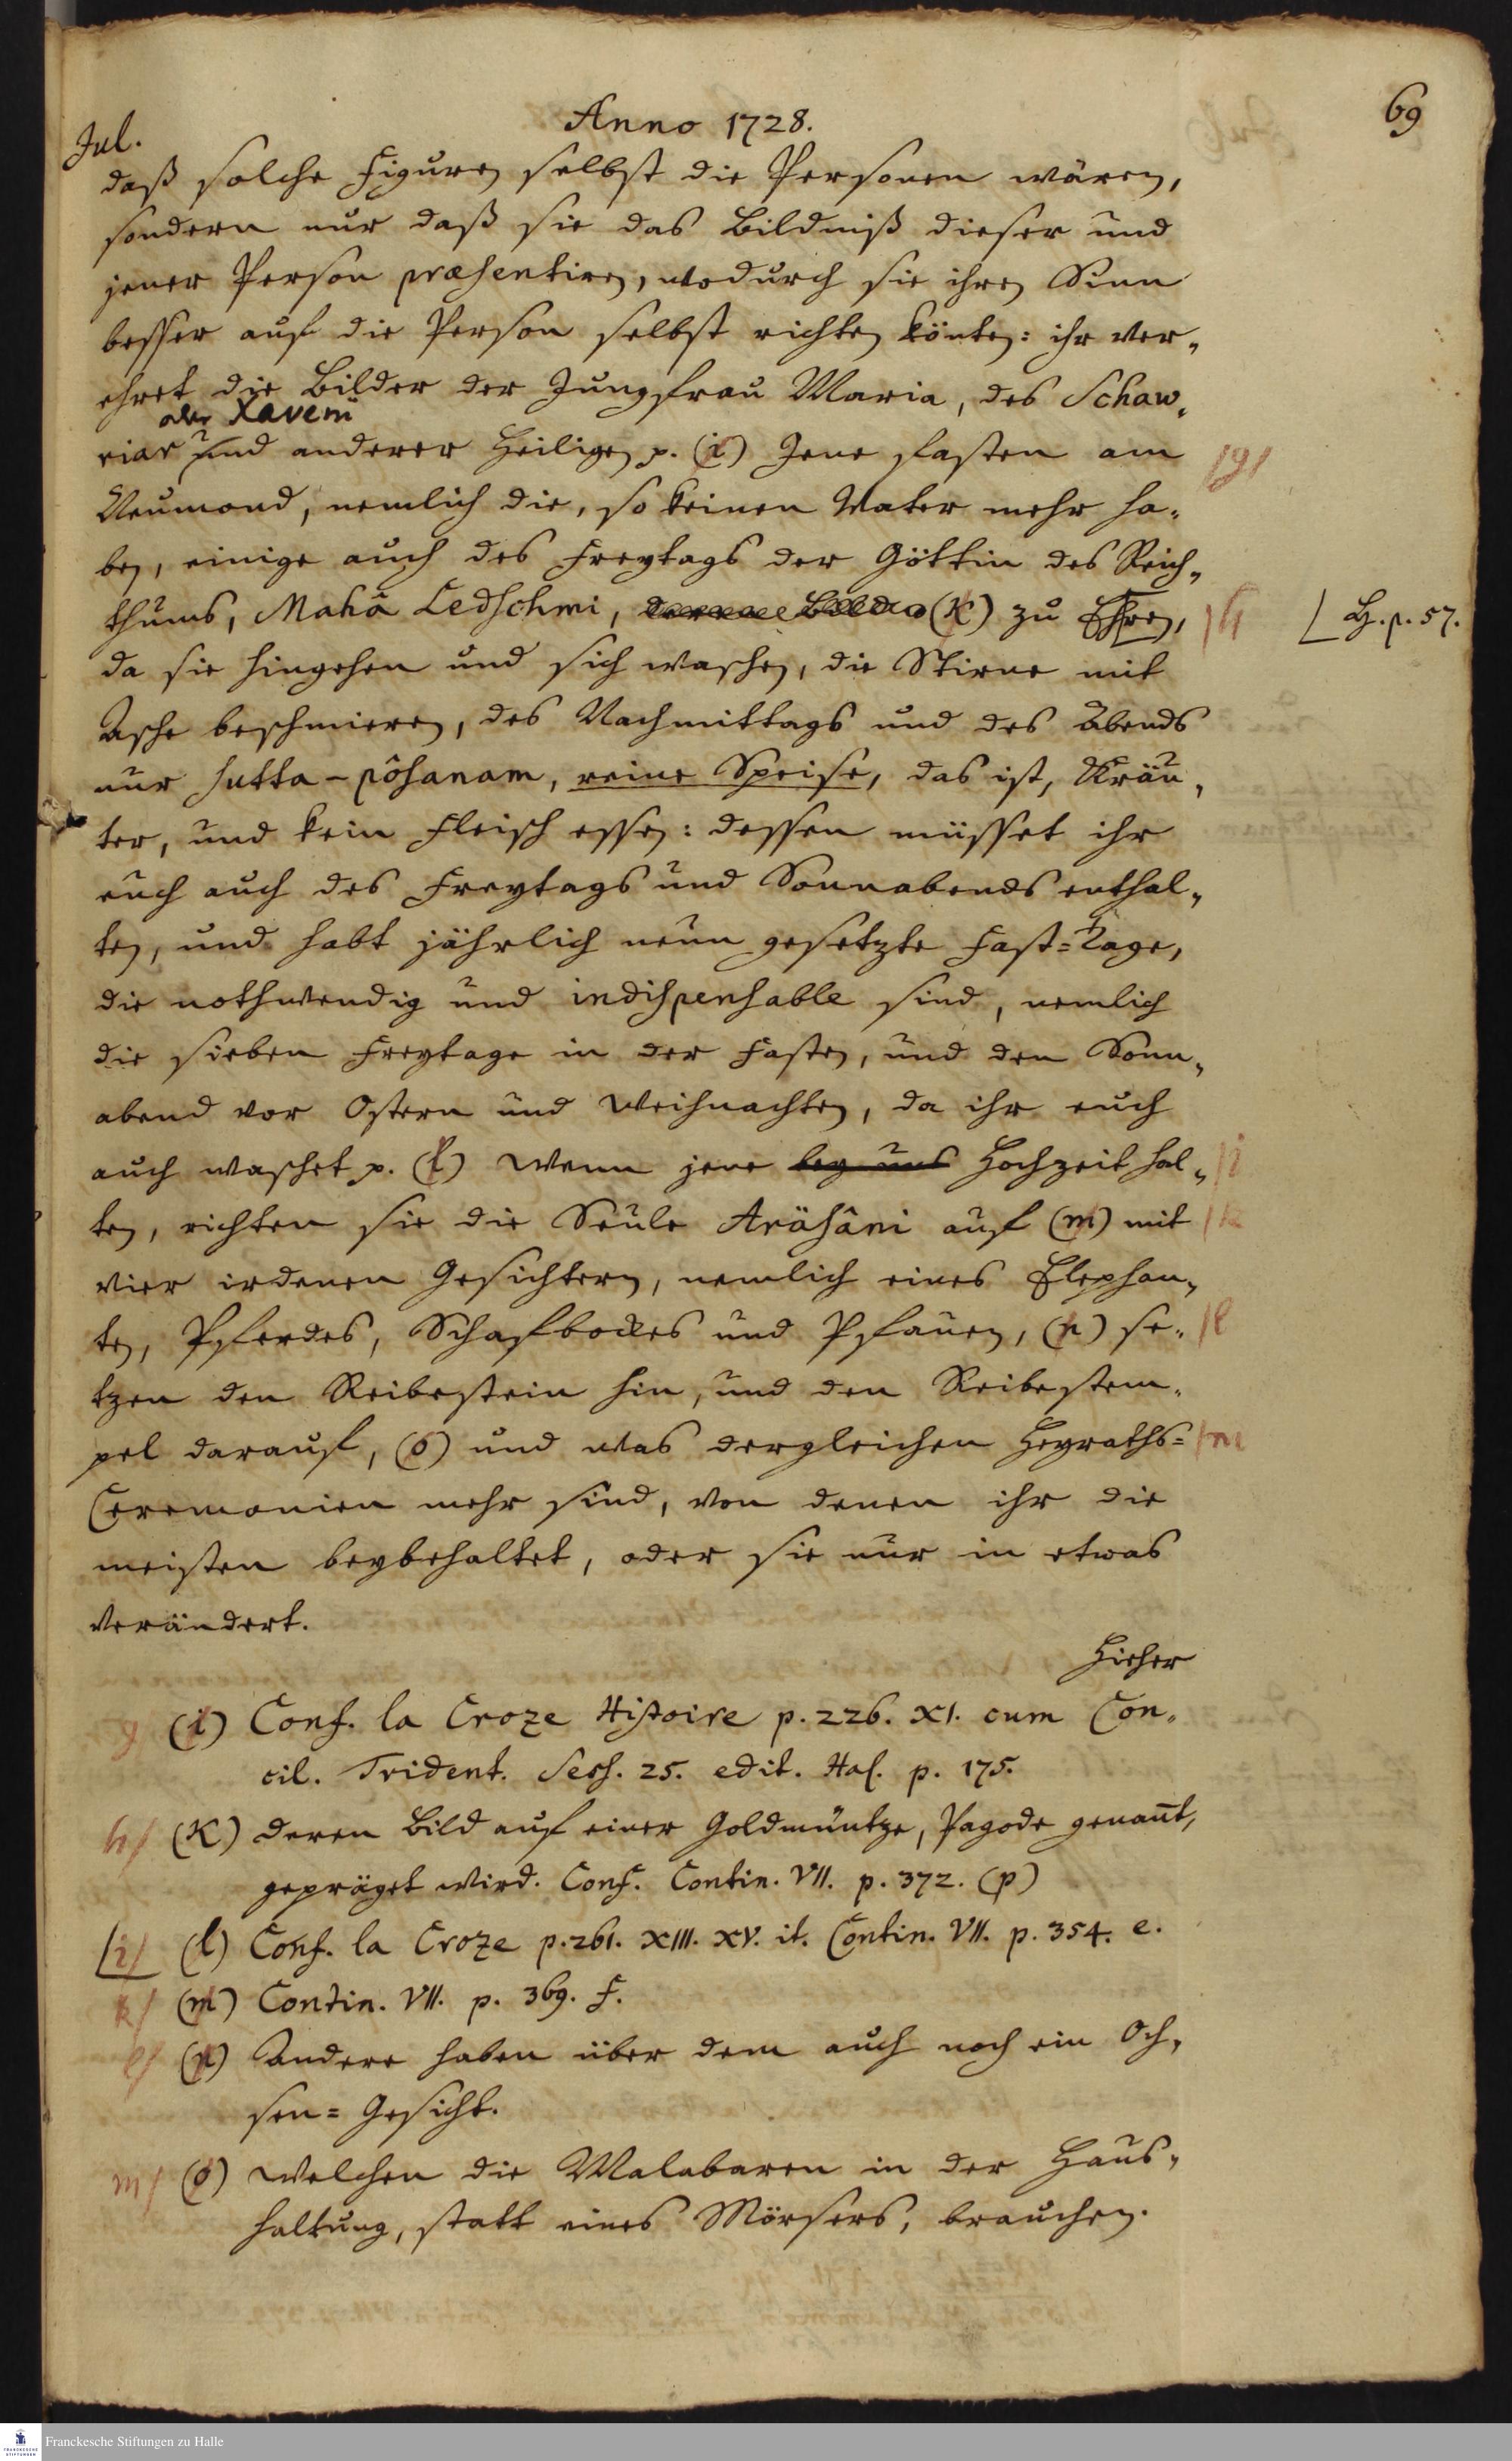 69
Anno 1728.
Jul.
daß solche Figuren selbst die Personen wären,
sondern nur daß sie das Bildniß dieser und
jener Person præsentiren, wodurch sie ihren Sinn
besser auf die Person selbst richten könten: ihr ver-
ehret die Bilder der Jungfrau Maria, des Schaw-
oder Xaverii
riar und anderer Heiligen p. (i) Jene fasten am g
Neumond, nemlich die, so keinen Vater mehr ha-
ben, einige auch des Freytags der Göttin des Reich-
thums, Mahâ Ledschmi, (K) zu Ehren, h B. p. 57.
da sie hingehen und sich waschen, die Stirne mit
Asche beschmieren, des Nachmittags und des Abends
nur sutta-pôsanam, reine Speise, das ist, Kräu-
ter, und kein Fleisch essen: dessen müsset ihr
euch auch des Freytags und Sonnabends enthal-
ten, und habt jährlich neun gesetzte Fast=Tage,
die nothwendig und indispensable sind, nemlich
die sieben Freytage in der Fasten, und den Sonn-
abend vor Ostern und Weihnachten, da ihr euch
auch waschet p. (l) Wenn jene bey uns Hochzeit hal- i
ten, richten sie die Seule Aräsâni auf (m) mit k
vier irdenen Gesichtern, nemlich eines Elephan-
ten, Pferdes, Schafbockes und Pfauen, (n) se- l
tzen den Reibestein hin, und den Reibestem-
pel darauf, (o) und was dergleichen Heyraths= m
Ceremonien mehr sind, von denen ihr die
meisten beybehaltet, oder sie nur in etwas
verändert.
Hieher
g (i) Conf. la Croze Histoire p. 226. XI. cum Con-
cil. Trident. Sess. 25. edit. Hal. p. 175.
h (K) deren Bild auf einer Goldmüntze, Pagode genañt,
gepräget wird. Conf. Contin. VII. p. 372. (p)
i (l) Conf. la Croze p. 261. XIII. XV. it. Contin. VII. p. 354. e.
k (m) Contin. VII. p. 369. f.
l (n) Andere haben über dem auch noch ein Och-
sen=Gesicht.
m (o) Welchen die Malabaren in der Haus-
haltung, statt eines Mörsers, brauchen.
Franckesche Stiftungen zu Halle